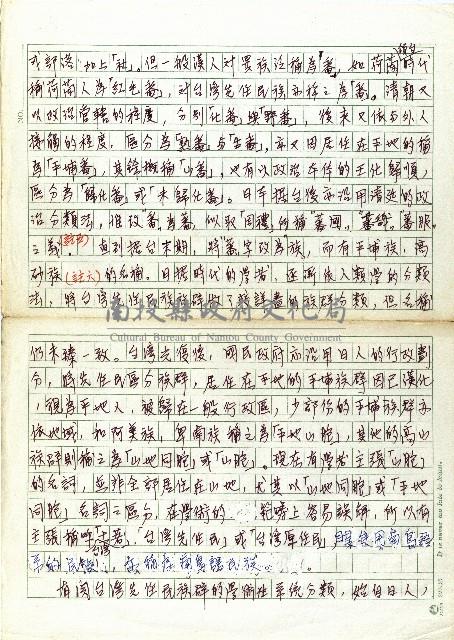 或部落,加上「社」。但一般漢人對異族泛稱為「番」,如荷蘭時代
稱荷蘭人為「紅毛番」,對台灣先住民族亦稱之為「番」。清朝又
以政治管轄的程度,分別「化番」與「野番」,後來又依與外人
接觸的程度,區分為「熟番」與「生番」,亦又因居住在平地的稱
為「平埔番」,其餘概稱「山番」,也有以政治本位的王化歸順,
區分為「歸化番」或「未歸化番」。日本據台後亦沿用清廷的政
治分類法,惟改「番」為蕃,似取「周禮」所稱蕃國、
之義。直到據台末期,將蕃字改為族,而有平埔族、高
砂族(註六)的名稱。日據時代的學者,逐漸依人類學的分類
法,將台灣先住民族群做了較詳盡的族群分類,但名稱
南投縣政府文化局
Cultural Bureau of Nantou County Government
仍未臻一致。台灣光復後,國民政府亦沿用日人的行政劃
分,將先住民區分族群,居住在平地的平埔族群因已漢化
,視為平地人,被歸在一般行政區,少部份的平埔族群亦
依地域,和阿美族、卑南族稱之為「平地山胞」,其他的高山
族群則稱之為「山地同胞」或「山胞」。現在有學者主張「山胞」
的名詞,並非全部居住在山地,尤其以「山地同胞」或「平地
同胞」名詞之區分,在學術的
主張稱呼上,台灣先住民」或「台灣原住民」
有關台灣先住民族群的學術性系統分類,始自日人,